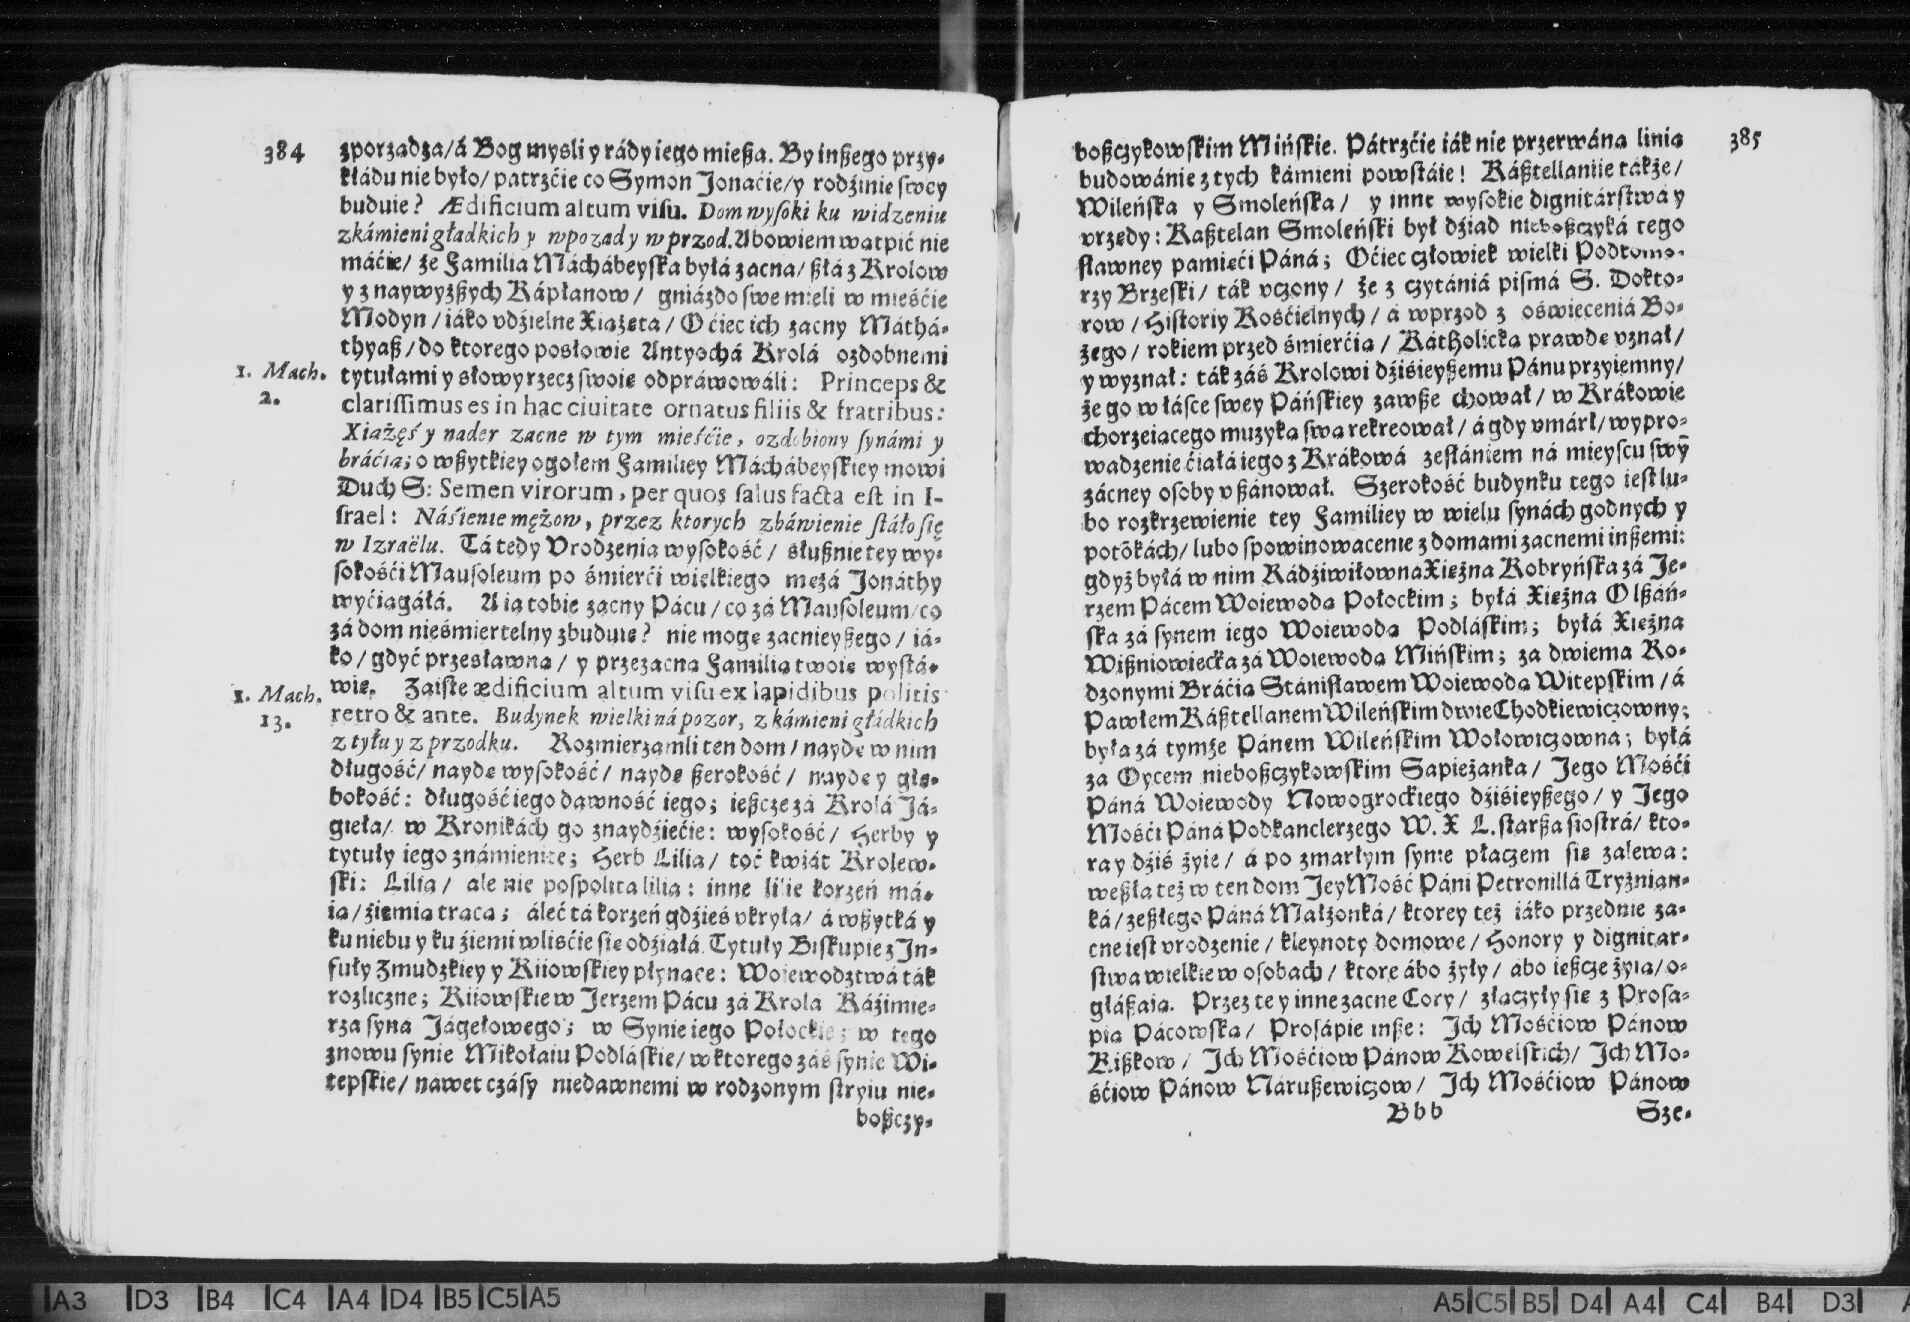 384
zporządza/á Bog mysli y rády iego mießa. By inßego przy-
kłádu nie było/ patrzćie co Symon Jonaćie/y rodźinie swey
buduie? Ædificium altum visu. Dom wysoki ku widzeniu
z kámieni głádkich y w pozad y w przod. Abowiem wątpić nie
máćie/ że Familia Máchábeyska byłá zacna/ ßłá z Krolow
y z naywyżßych Kápłanow/ gniázdo swe mieli w mieśćie
Modyn/iáko vdźielne Xiążęta/Oćiec ich zacny Máthá-
thyaß/do ktorego posłowie Antyochá Krolá ozdobnemi
1. Mach. 2.
tytułami y słowy rzecz swoię odpráwowáli: Princeps &
clarissimus es in hac ciuitate ornatus filiis & fratribus:
Xiążęś y nader zacne w tym mieśćie, ozdobiony synámi y
bráćią; o wßytkiey ogołem Familiey Máchábeyskiey mowi
Duch S: Semen virorum, per quos salus facta est in I-
srael: Náśienie mężow, przez ktorych zbáwienie stáło się
w Izraëlu. Tá tedy Vrodzenia wysokość/ słußnie tey wy-
sokośći Mausoleum po śmierći wielkiego mężá Jonáthy
wyćiągáłá. A ia tobie zacny Pácu/co zá Mausoleum/co
zá dom nieśmiertelny zbuduię? nie mogę zacnieyßego/ iá-
ko/gdyć przesławną/ y przezacną Familią twoię wystá-
1. Mach. 13.
wię. Zaiste ædificium altum visu ex lapidibus politis
retro & ante. Budynek wielki ná pozor, z kámieni głádkich
z tyłu y z przodku. Rozmierzamli ten dom/naydę w nim
długość/ naydę wysokość/ naydę ßerokość/ naydę y głę-
bokość: długość iego dawność iego; ießcze zá Krolá Já-
giełá/ w Kronikách go znaydźiećie: wysokość/ Herby y
tytuły iego známienite; Herb Lilia/ toć kwiát Krolew-
ski: Lilia/ ale nie pospolita lilia: inne lilie korzeń má-
ią/źiemią trącą; áleć tá korzeń gdźieś vkryłá/ á wßytká y
ku niebu y ku źiemi w liśćie się odźiałá. Tytuły Biskupie z In-
fuły Zmudzkiey y Kiiowskiey płynące: Woiewodztwá ták
rozliczne; Kiiowskie w Jerzem Pácu zá Krola Káźimie-
rza syná Jágełowego; w Synie iego Połockie; w tego
znowu synie Mikołaiu Podláskie/ w ktorego záś synie Wi-
tepskie/ nawet czásy niedawnemi w rodzonym stryiu nie-
boßczy-
385
boßczykowskim Mińskie. Pátrzćie iák nie przerwána linia
budowánie z tych kámieni powstáie! Káßtellaniie tákże/
Wileńska y Smoleńska/ y inne wysokie dignitárstwá y
vrzędy: Kaßtelan Smoleński był dźiad nieboßczyká tego
sławney pamięći Páná; Oćiec człowiek wielki Podkomo-
rzy Brzeski/ ták vczony/ że z czytániá pismá S. Dokto-
row/Historiy Kośćielnych/ á wprzod z oświeceniá Bo-
żego/rokiem przed śmierćią/ Kátholicką prawdę vznał/
y wyznał: ták záś Krolowi dźiśieyßemu Pánu przyiemny/
że go w łásce swey Páńskiey zawße chował/ w Krákowie
chorzeiącego muzyką swą rekreował/á gdy vmárł/wypro-
wadzenie ćiałá iego z Krákowá zesłániem ná mieyscu swỹ
zácney osoby vßánował. Szerokość budynku tego iest lu-
bo rozkrzewienie tey Familiey w wielu synách godnych y
potõkách/ lubo spowinowacenie z domami zacnemi inßemi:
gdyż byłá w nim Rádźiwiłowna Xiężna Kobryńska zá Je-
rzem Pácem Woiewodą Połockim; byłá Xiężna Olßáń-
ska zá synem iego Woiewodą Podláskim; byłá Xiężna
Wißniowiecka zá Woiewodą Mińskim; za dwiema Ro-
dzonymi Bráćią Stánisławem Woiewodą Witepskim/á
Pawłem Káßtellanem Wileńskim dwie Chodkiewiczowny;
była zá tymże Pánem Wileńskim Wołowiczowna; byłá
za Oycem nieboßczykowskim Sapieżanka/ Jego Mośći
Páná Woiewody Nowogrockiego dźiśieyßego/y Jego
Mośći Páná Podkanclerzego W. X L. starßa siostrá/ kto-
ra y dźiś żyie/ á po zmarłym synie płaczem się zalewa:
weßła też w ten dom Jey Mość Páni Petronillá Tryźnian-
ká/zeßłego Páná Małżonká/ktorey też iáko przednie za-
cne iest vrodzenie/kleynoty domowe/Honory y dignitar-
stwa wielkie w osobach/ ktore ábo żyły/ ábo ießcze żyią/o-
głáßaią. Przez te y inne zacne Cory/ złączyły się z Prosa-
pią Pácowską/ Prosápie inße: Jch Mośćiow Pánow
Kißkow/ Jch Mośćiow Pánow Kowelskich/ Jch Mo-
śćiow Pánow Nárußewiczow/ Jch Mośćiow Pánow
Bbb Sze-
A3 D3 B4 C4 A4 D4 B5 C5 A5
A5 C5 B5 D4 A4 C4 B4 D3